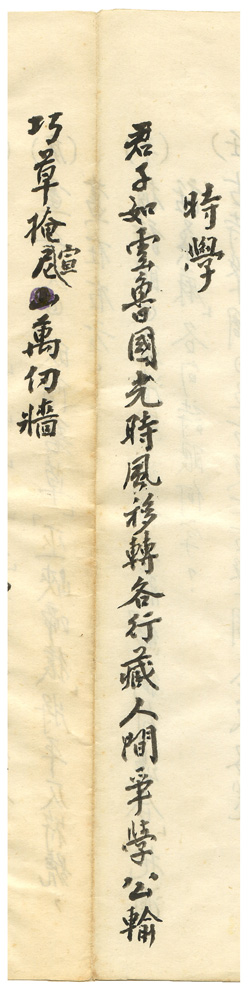 時學
君子如雲魯國光時風移轉各行藏人間爭學公輸
巧草掩宣尼萬仞牆